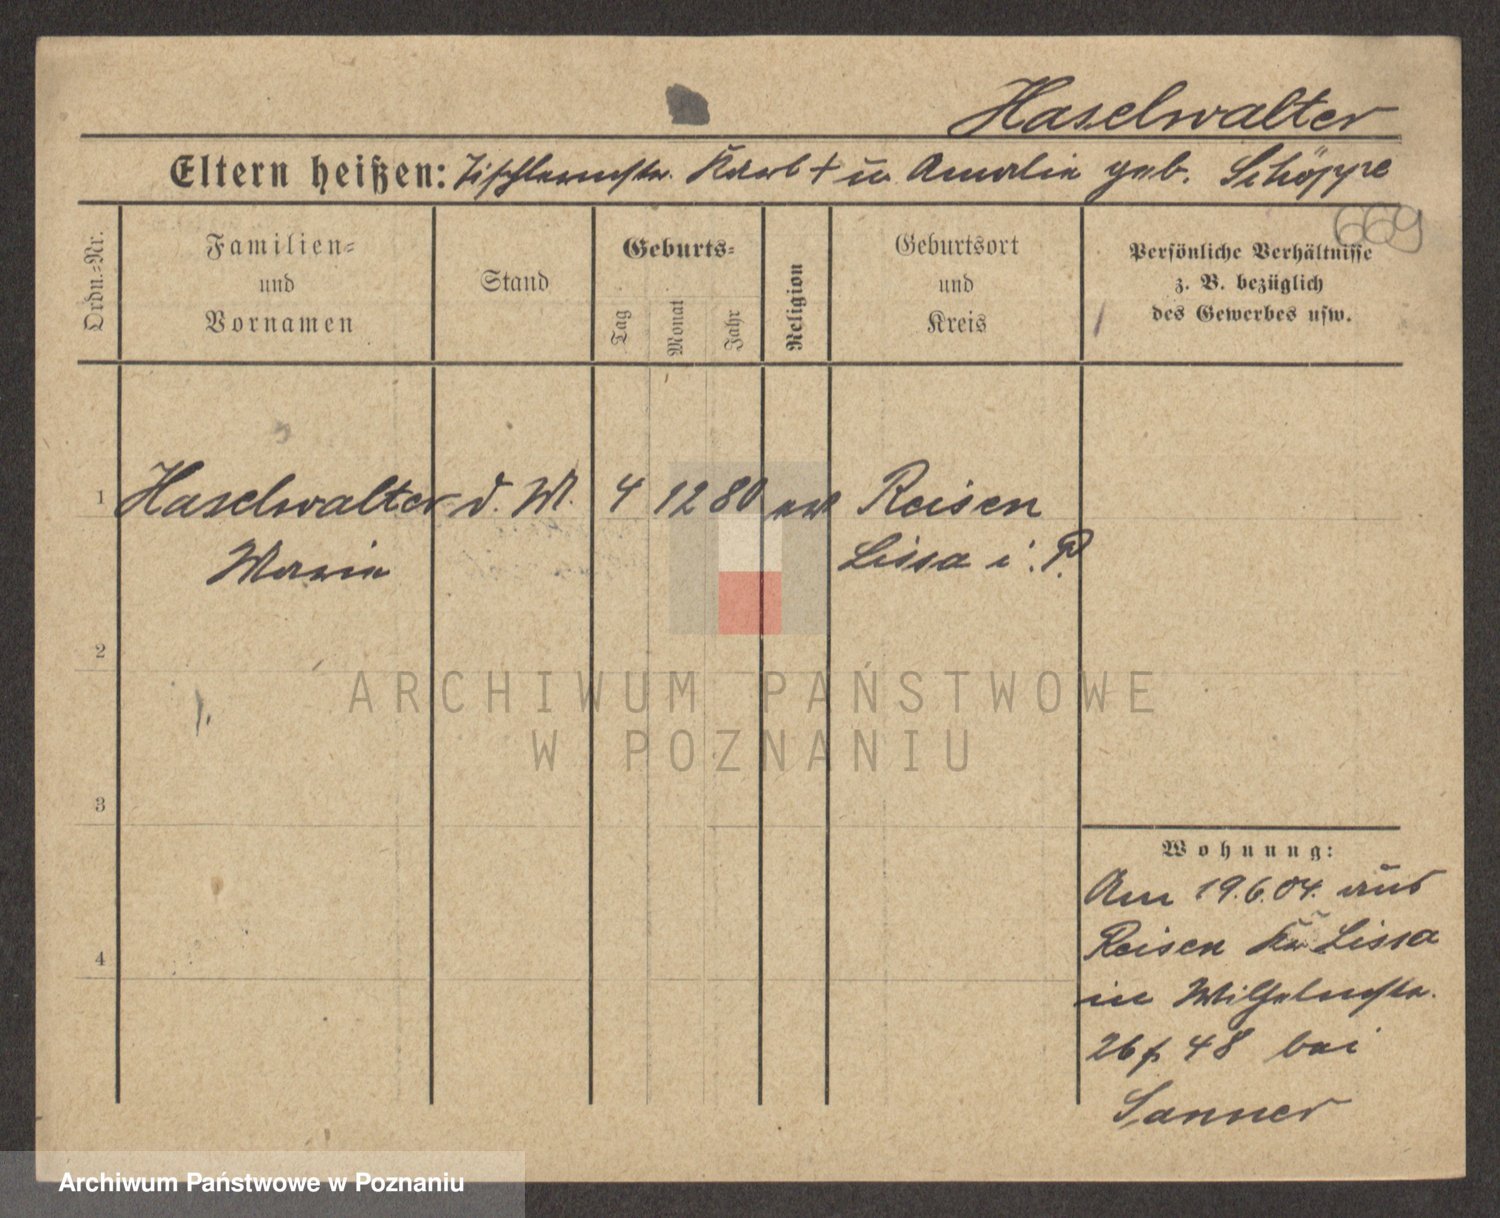 Haselwalter
Eltern heißen: Tischlermstr. Karl † u Amalie geb. Schöppe
669
Ordn.=Nr.
Familien=
und
Vornamen
Stand
Geburts=
Tag
Monat
Jahr
Religion
Geburtsort
und
Kreis
Persönliche Verhältnisse
z. B. bezüglich
des Gewerbes usw.
1 Haselwalter d. M. 4 12 80 ev Reisen
Maria Lissa i. P.
2
ARCHIWUM PAŃSTWOWE
W POZNANIU
3
Wohnung:
Am 19.6.04. aus
Reisen Kr Lissa
4
in Wilhelmstr.
26 48 bei
Sanner
Archiwum Państwowe w Poznaniu